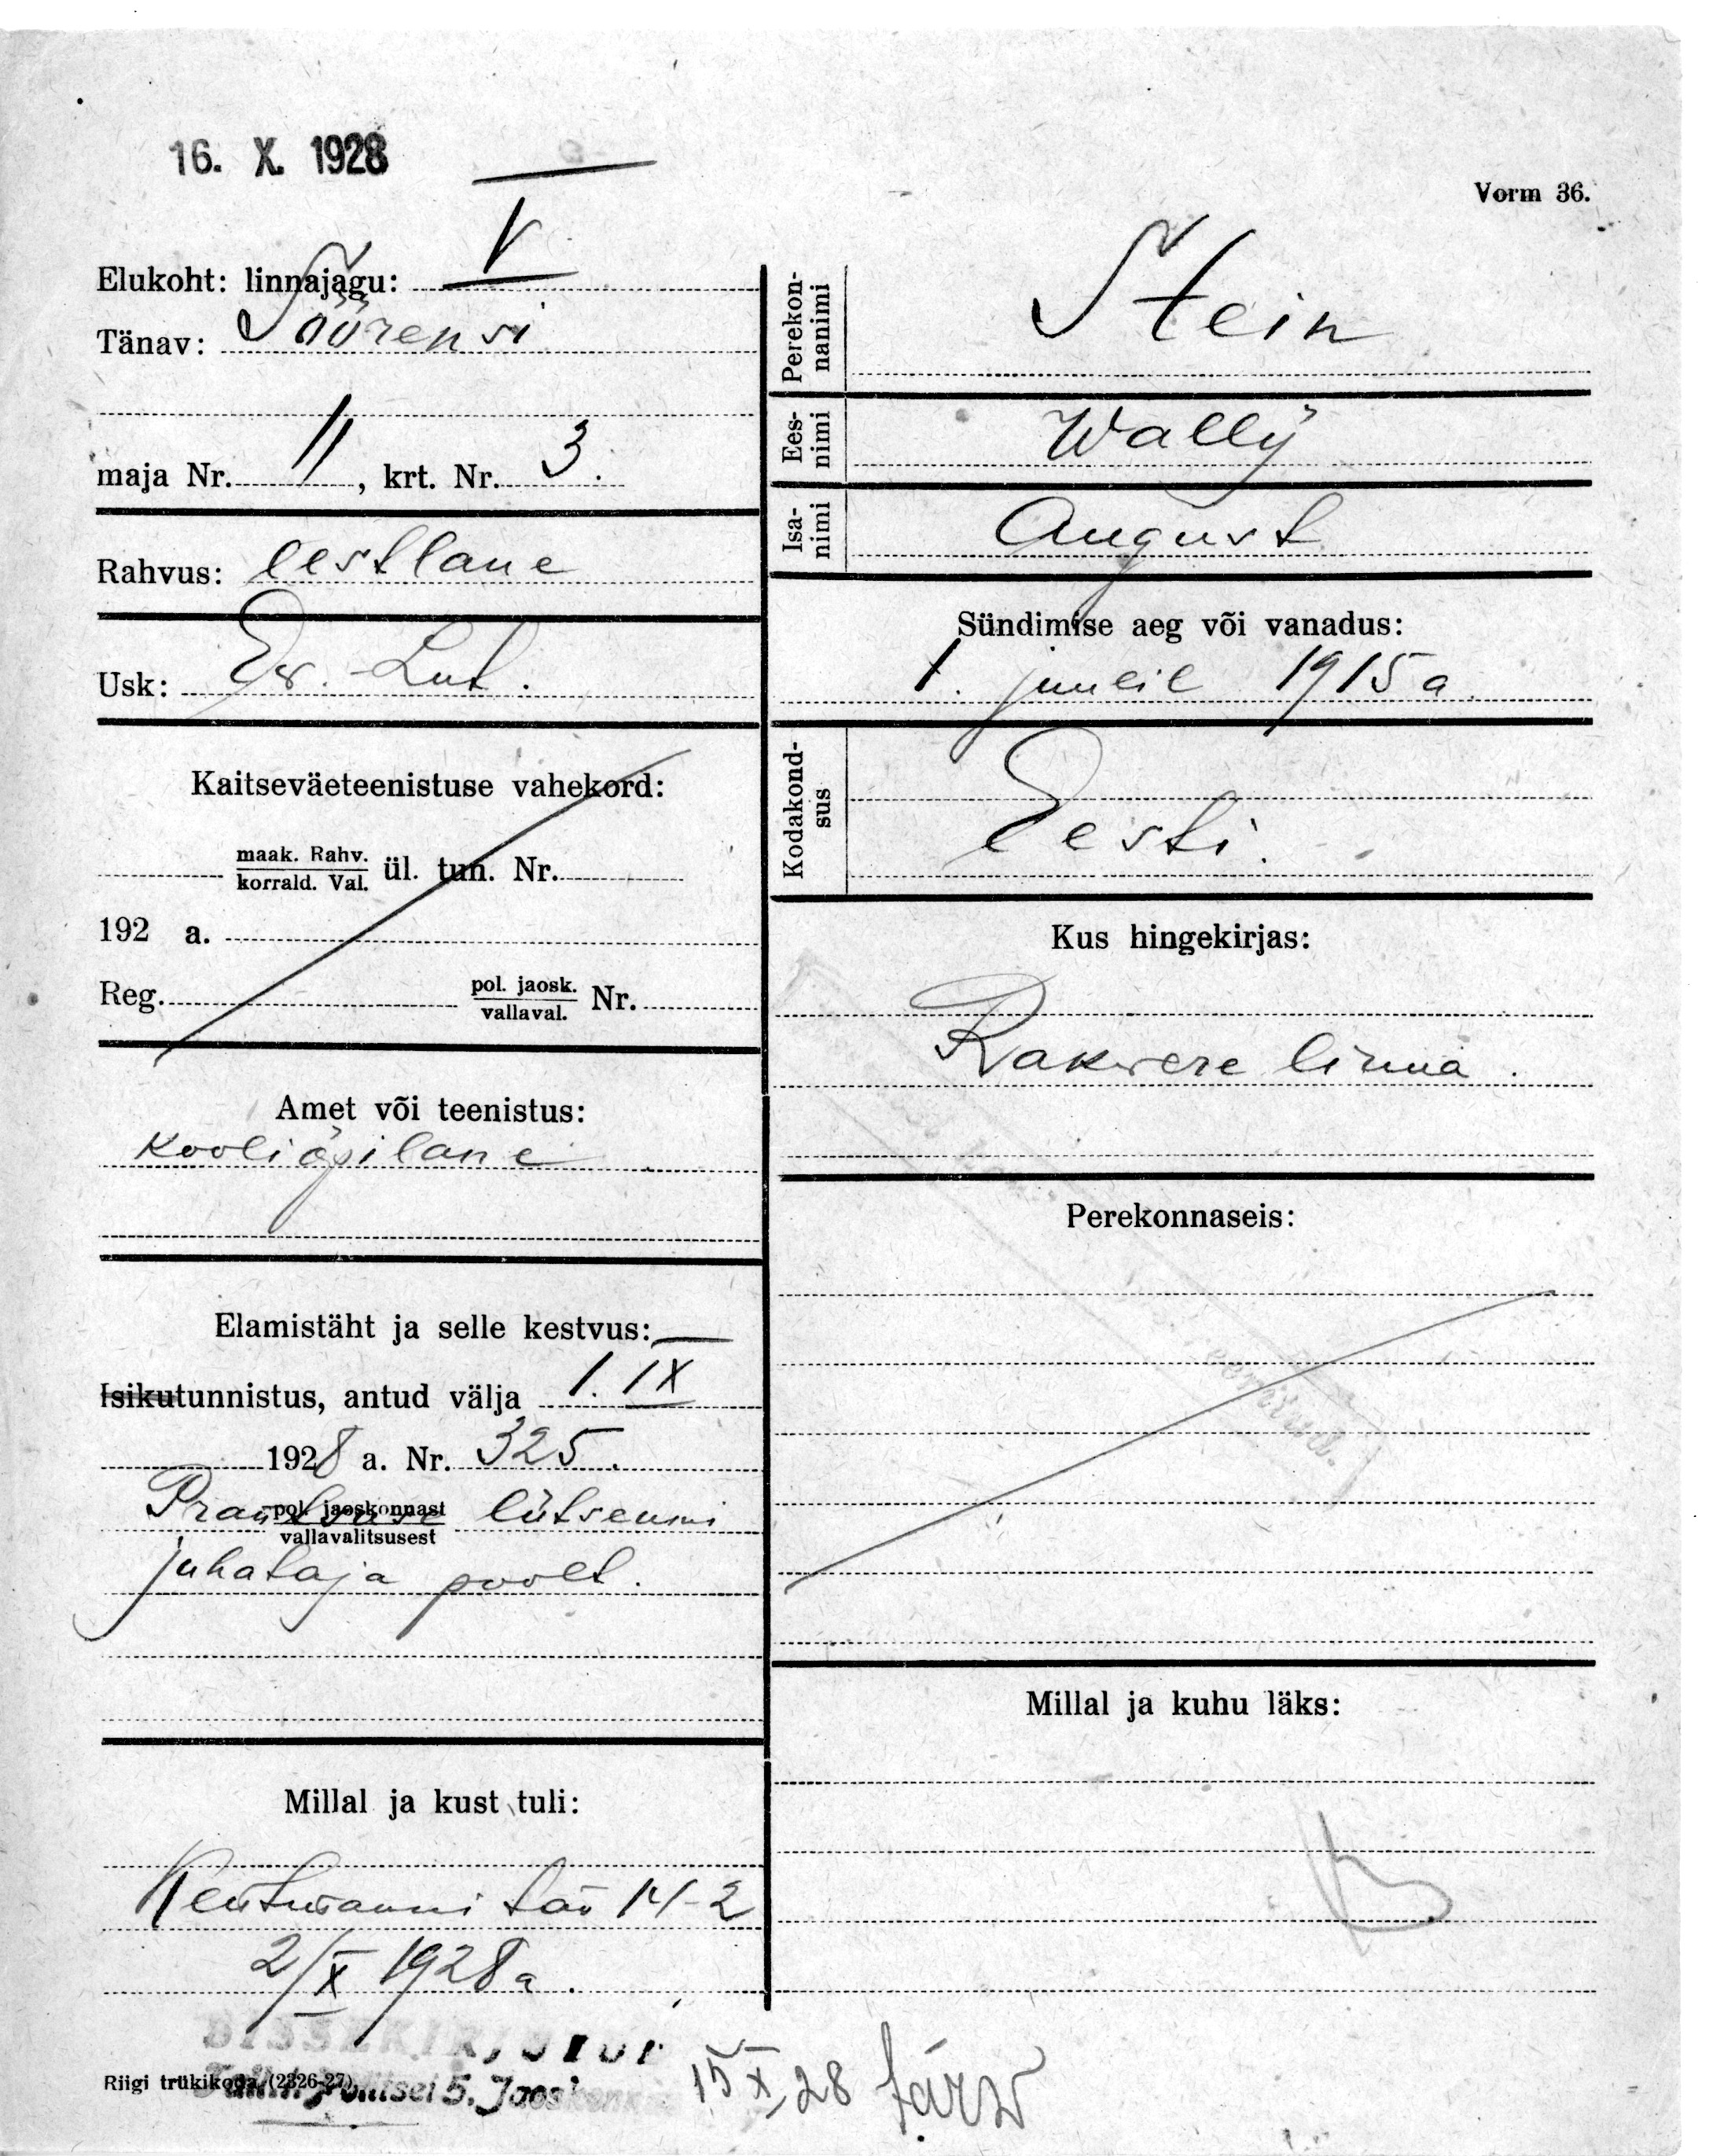 16. X. 1928
Vorm 36.
Elukoht: linnajagu: V
Tänav: Söörensi
maja Nr. 11, krt. Nr. 3.
Rahvus: eestlane
Usk: Ev. Lut.
Kaitseväeteenistuse vahekord:
maak. Rahv. korrald. Val. ül. tun. Nr.
192 a.
Reg. pol. jaosk. vallaval. Nr.
Amet või teenistus:
Kooliõpilane
Elamistäht ja selle kestvus: —
Isikutunnistus, antud välja 1. IX
1928 a. Nr. 325.
Prantsuse pol. jaoskonnast lütseumi
vallavalitsusest
juhataja poolt.
Millal ja kust tuli:
Kentmanni tän 14-2
2/X 1928 a.
Perekon-
nanimi
Stein
Ees-
nimi
Wally
Isa-
nimi
August
Sündimise aeg või vanadus:
1. juulil 1915 a.
Kodakond-
sus
Eesti.
Kus hingekirjas:
Rakvere linna.
Perekonnaseis:
Millal ja kuhu läks:
SISSEKIRJUTUD
Riigi trükikoda (2326-27)
Tallin. Politsei 5. Jaoskonnas
15 X 28 Järv